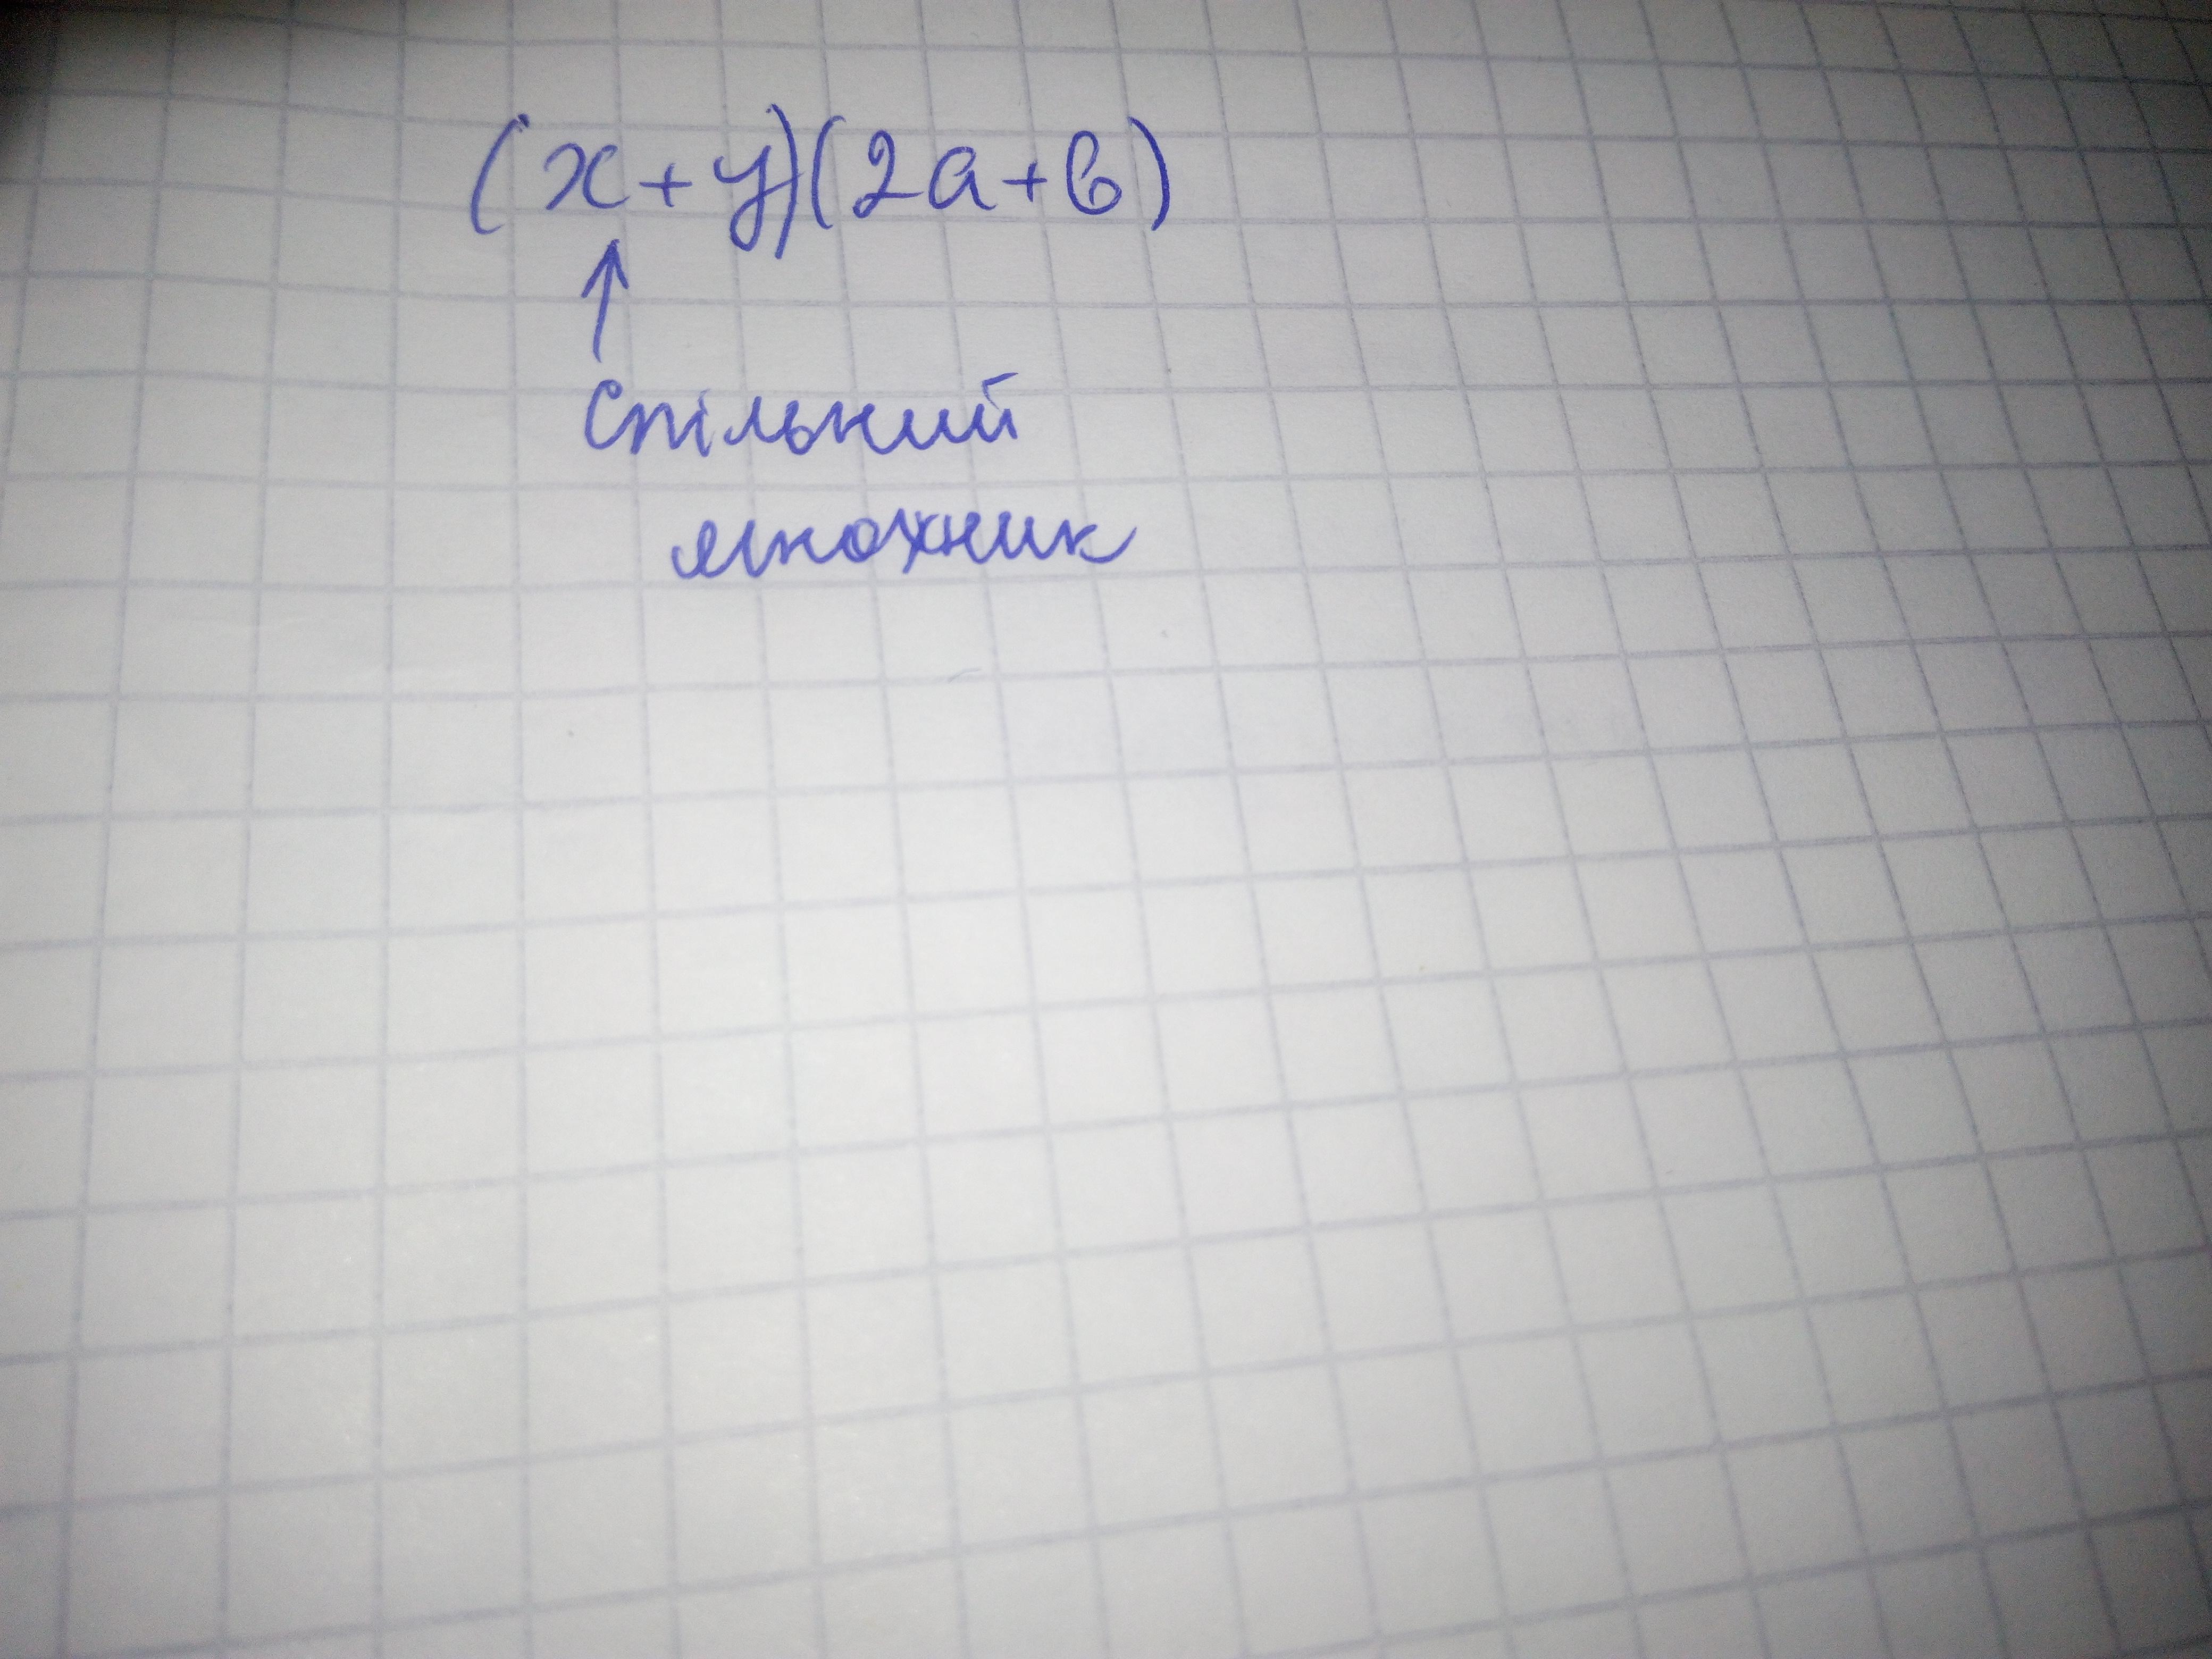 (x+y)(2a+b)
↑
Спільний
множник